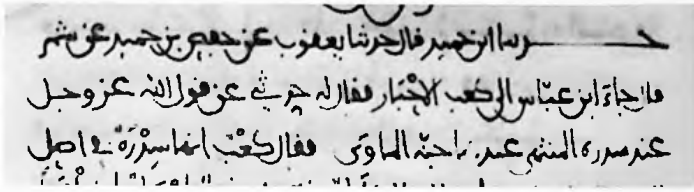 حدثنا ابن حميد قال حدثنا يعقوب عن حفص بن حميد عن شمر
قال جاء ابن عباس الى كعب الاحبار فقال له حدثني عن قول الله عز وجل
عند سدرة المنتهى عندها جنة الماوى فقال كعب انها سدرة في اصل